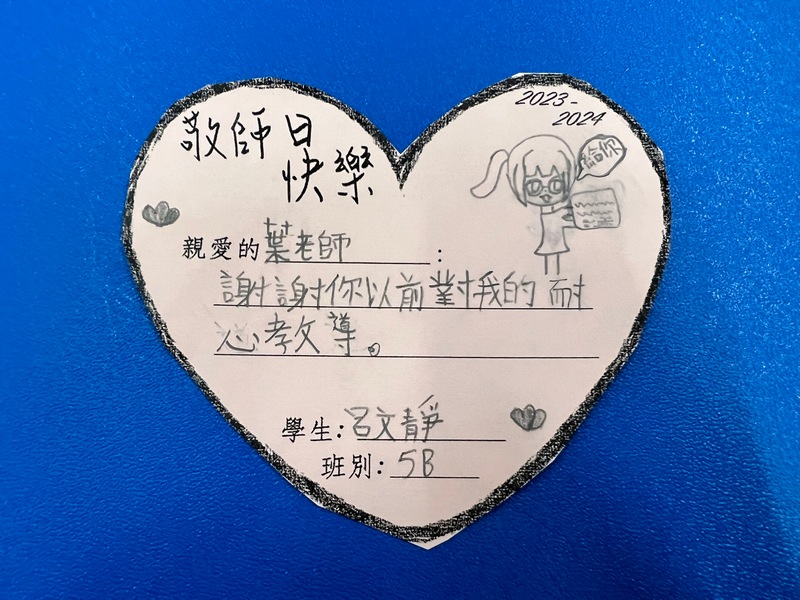 敬師日
快樂
2023-
2024
給你
親愛的葉老師:
謝謝你以前對我的耐
心教導。
學生:呂文靜
班別:5B